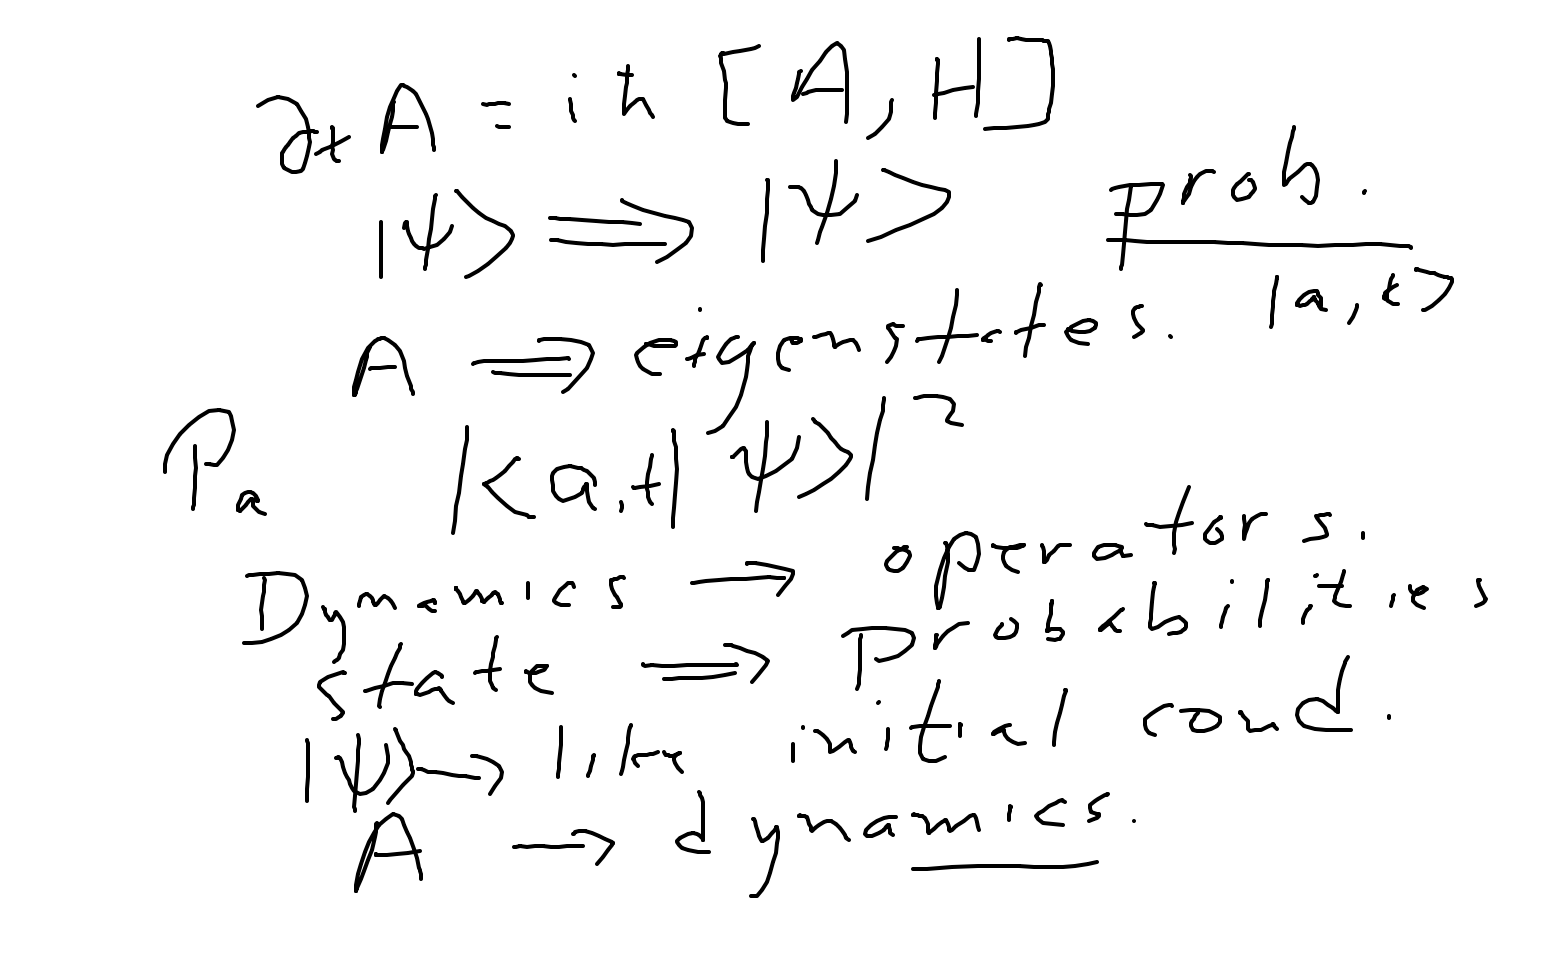 ∂ₜA = iħ [A, H]
|ψ> ⟹ |ψ> prob.
A ⟹ eigenstates. |a,t>
Pₐ |<a,t|ψ>|²
Dynamics → operators.
state ⟹ Probabilities
|ψ> → like initial cond.
A → dynamics.